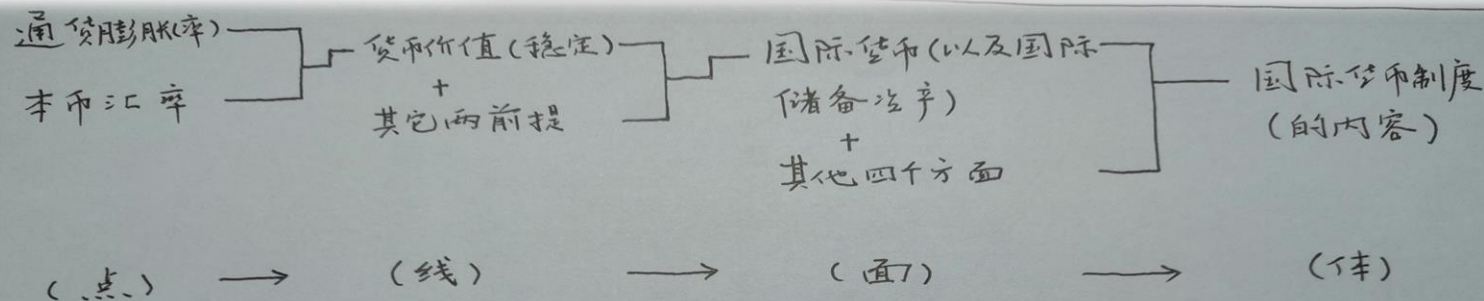 通货膨胀(率)
本币汇率
货币价值(稳定)
+
其它两前提
国际货币(以及国际
储备资产)
+
其他四个方面
国际货币制度
(的内容)
(点) → (线) → (面) → (体)